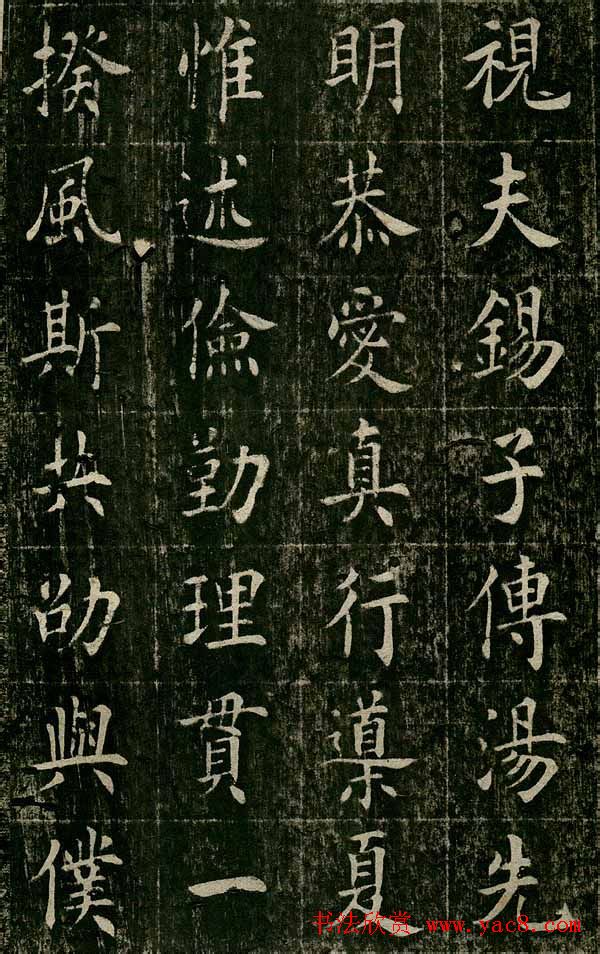 視夫錫子傳湯先
明恭愛真行導夏
惟述儉勤理貫一
揆風斯共劭與僕
书法欣赏 www.yac8.com